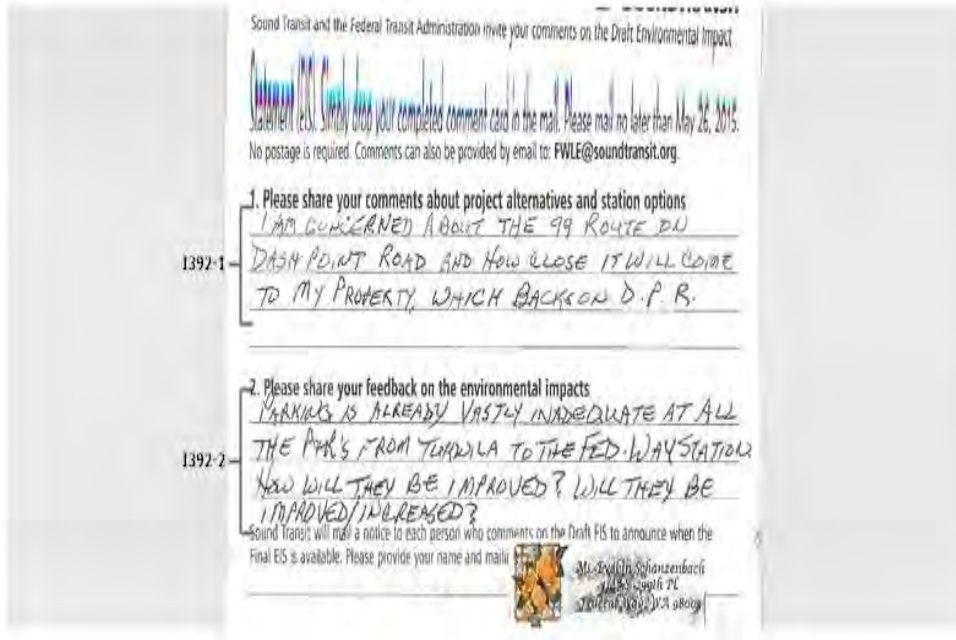 Sound Transit and the Federal Transit Administration invite your comments on the Draft Environmental Impact
Statement (EIS). Simply drop your completed comment card in the mail. Please mail no later than May 26, 2015.
No postage is required. Comments can also be provided by email to: FWLE@soundtransit.org.
1. Please share your comments about project alternatives and station options
I AM CONCERNED ABOUT THE 99 ROUTE ON
1392-1
DASH POINT ROAD AND HOW CLOSE IT WILL COME
TO MY PROPERTY, WHICH BACKS ON D.P.R.
2. Please share your feedback on the environmental impacts
PARKING IS ALREADY VASTLY INADEQUATE AT ALL
THE P&R'S FROM TUKWILA TO THE FED. WAY STATION.
1392-2
HOW WILL THEY BE IMPROVED? WILL THEY BE
IMPROVED/INCREASED?
Sound Transit will mail a notice to each person who comments on the Draft EIS to announce when the
Final EIS is available. Please provide your name and
Schanzenbach
299th PL
WA